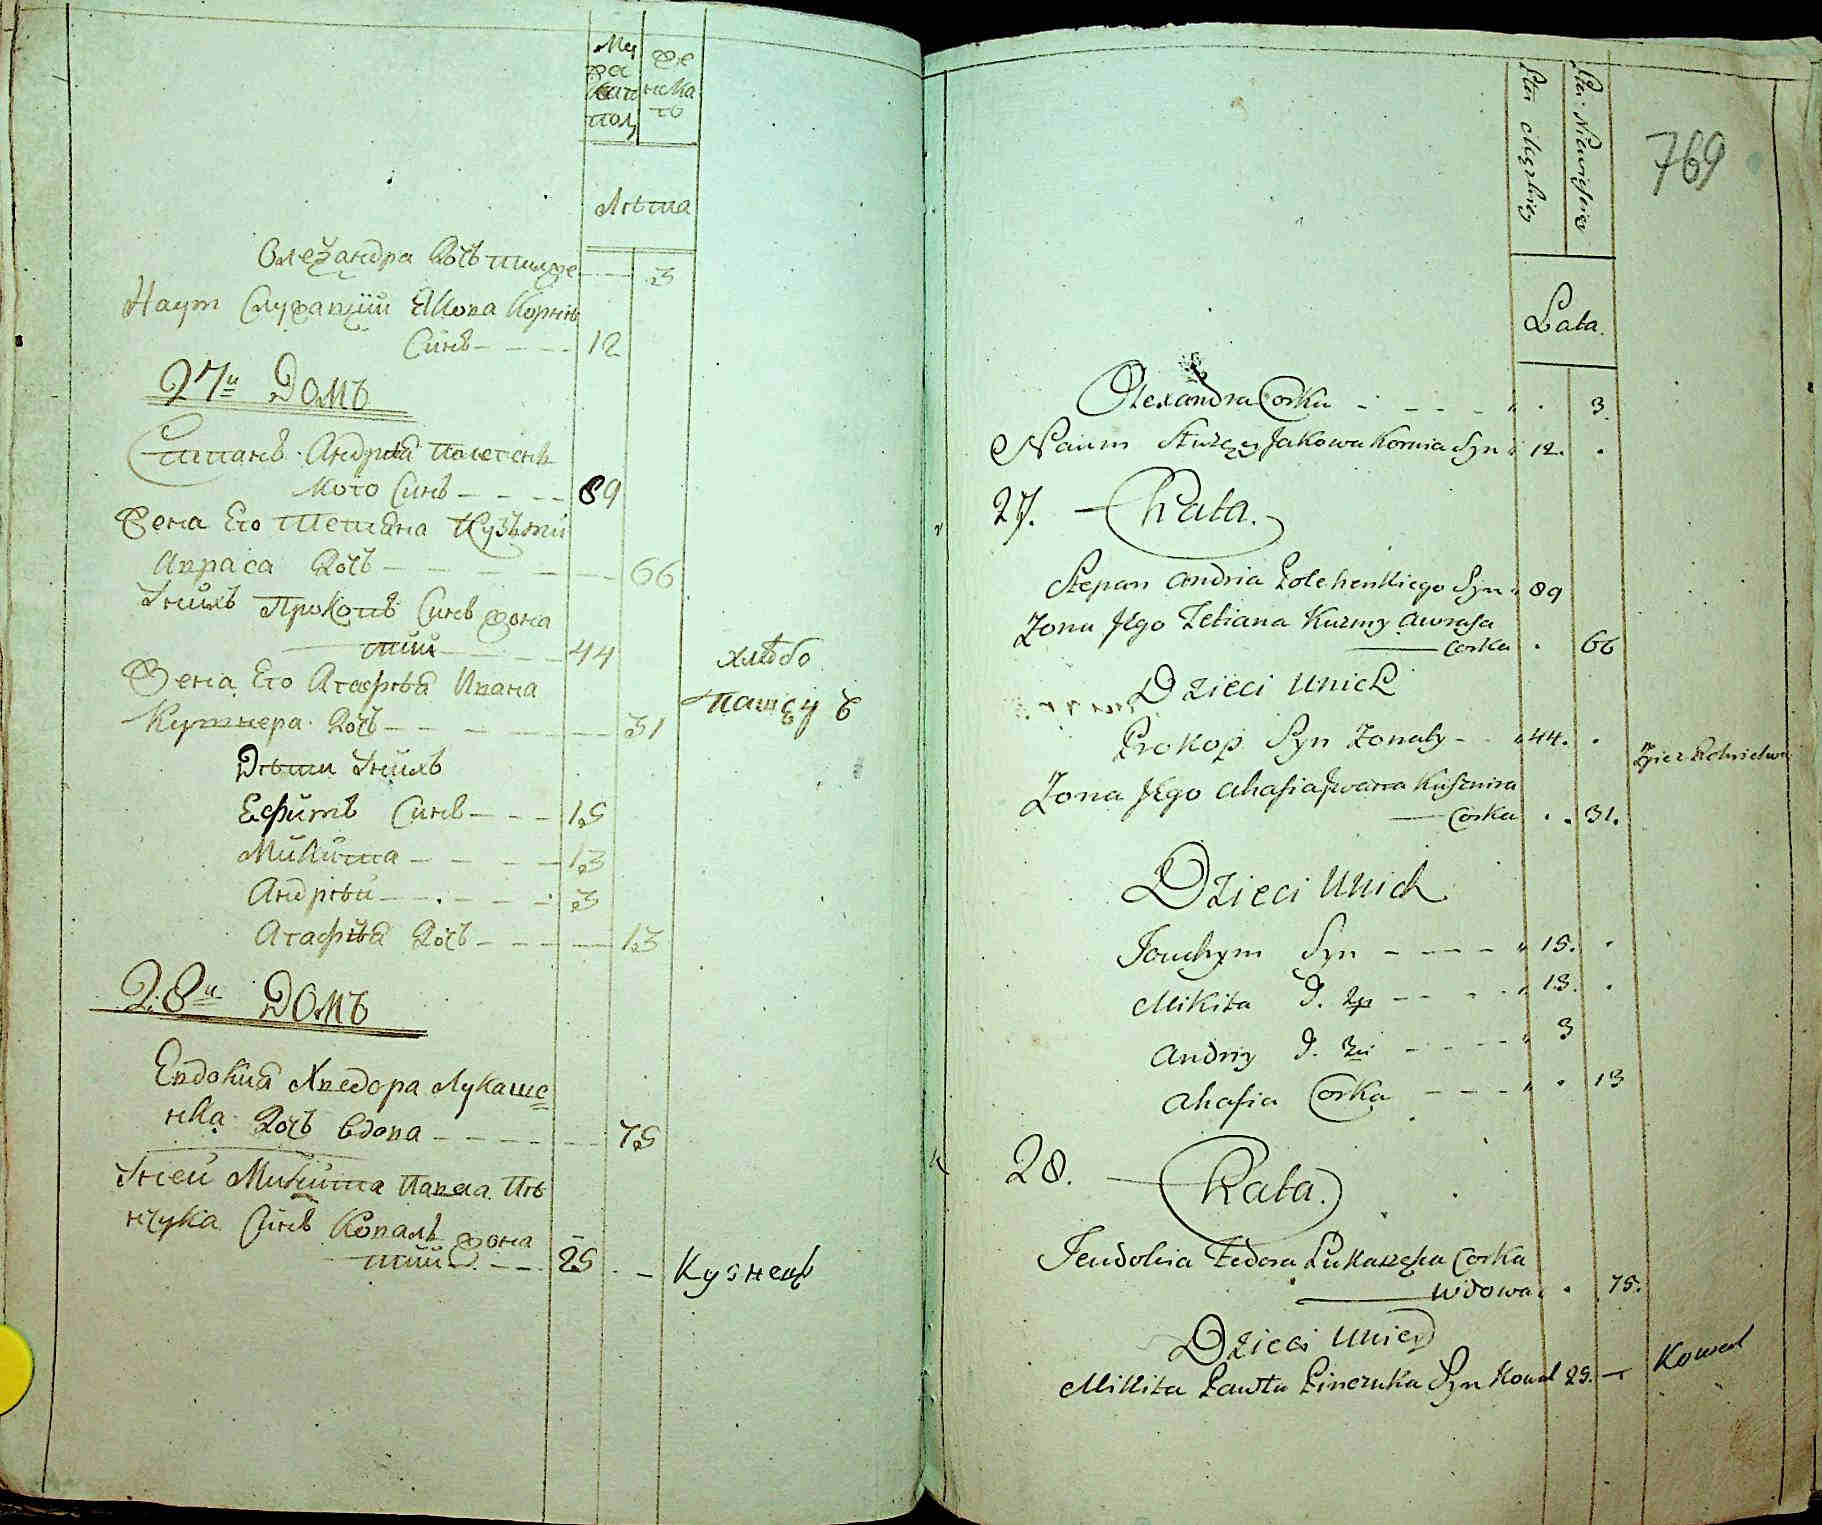 Му
же
ска
пол
же
нска
го
Лѣта
Олеѯандра Дочь 3
Наум Служащій Якова Корнѣя
Синъ 12
27й Домъ
Степанъ Андрѣя Полеген
кого Синъ 89
Жена Его Тетяна Кузьми
Авраса Дочь 66
Унихъ Прокопъ Синъ жона
тий 44
хлѣбо
Жена Его Агафѣя Ивана
пашецъ
Кушнера Дочь 31
Дѣти Унихъ
Ефимъ Синъ 15
Микита 13
Андрѣй 3
Агафѣя Дочь 13
28й Домъ
Евдокия Хведора Лукаше
нка Дочь вдова 75
Уней Микита Павла Пѣ
нчука Синъ Коваль жона
тий 25 Кузнецъ
769
Lata.
Olexandra Corka 3.
Naum Służący Jakowa Kornia Syn 12.
27. Chata.
Stepan Andria Polehenkiego Syn 89
Żona Jego Tetiana Kuzmy Awrasa
Corka 66
Dzieci Unich
Prokop Syn Żonaty 44.
Żyie z Rolnictwa
Żona Jego Ahafia Jwana Kusznira
Corka 31.
Dzieci Unich
Jouchym Syn 15.
Mikita D. 2gi 13.
Andriy D. 3ci 3
Ahafia Corka 13
28. Chata.
Jewdokia Fedora Lukaszęka Corka
Wdowa 75.
Dzieci Uniey
Mikita Pawła Pinczuka Syn Kowal 25. Kowal